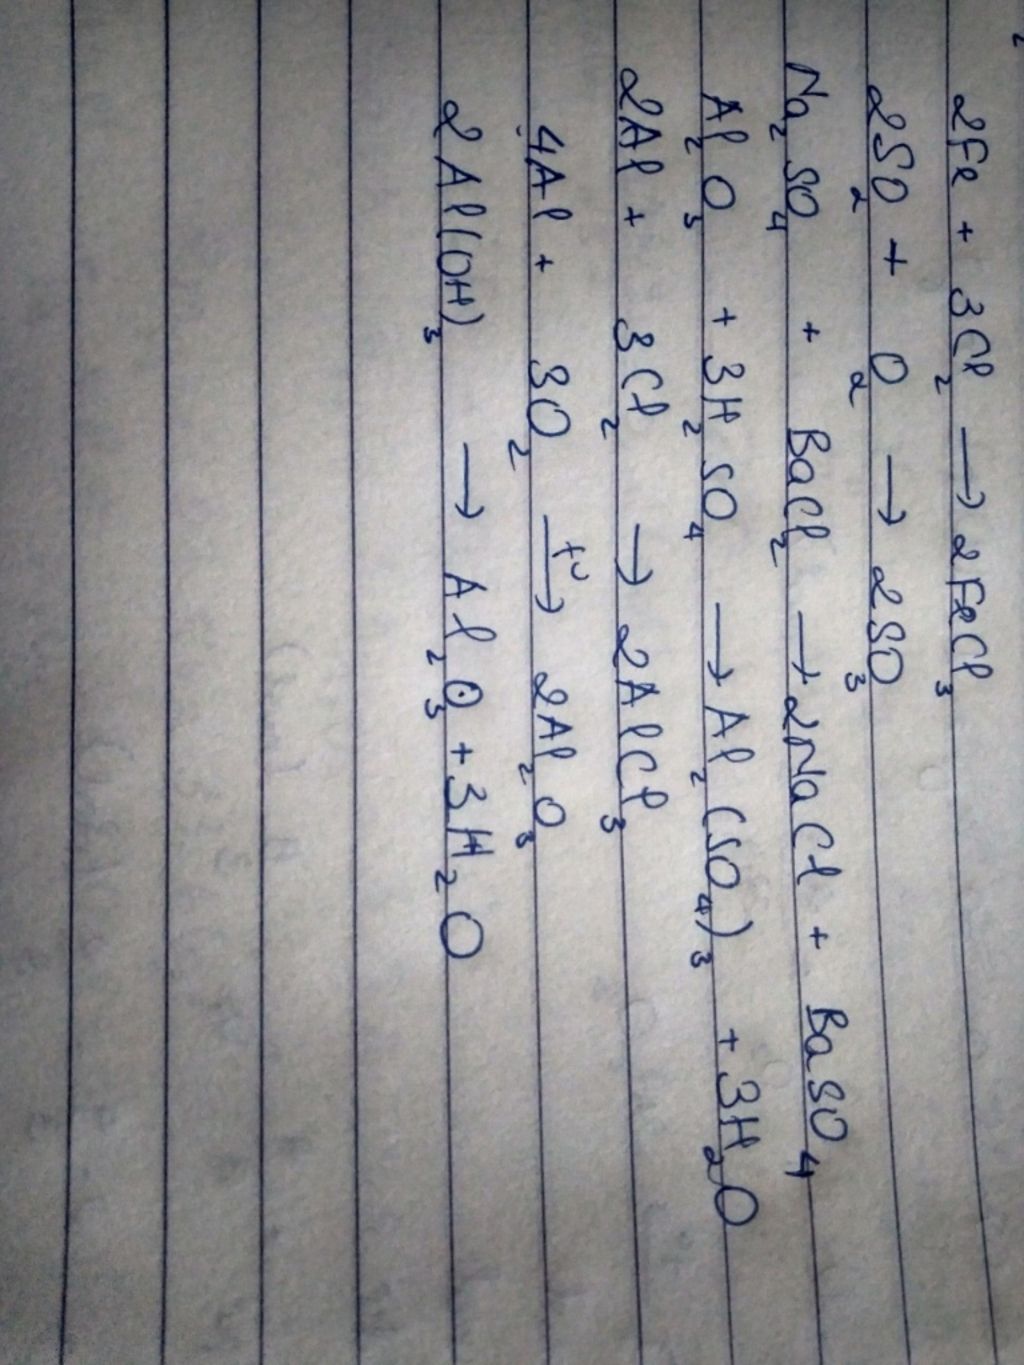 2Fe + 3Cl₂ → 2FeCl₃
2SO₂ + O₂ → 2SO₃
Na₂SO₄ + BaCl₂ → 2NaCl + BaSO₄
Al₂O₃ + 3H₂SO₄ → Al₂(SO₄)₃ + 3H₂O
2Al + 3Cl₂ → 2AlCl₃
4Al + 3O₂ → 2Al₂O₃
2Al(OH)₃ → Al₂O₃ + 3H₂O